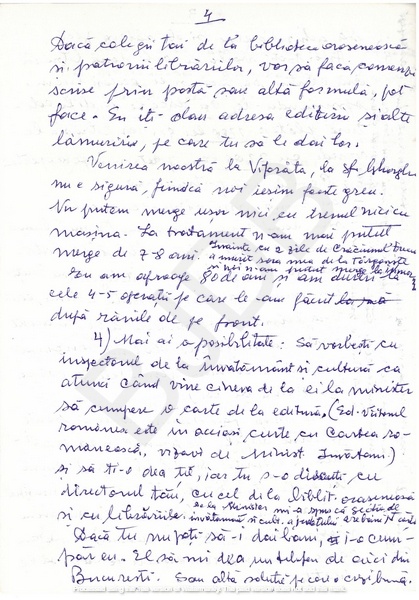 4
Dacă colegii tăi de la biblioteca orasenească
și patronii librăriilor, vor să facă comenzi
scrise prin poștă sau altă formulă, pot
face. Eu îți dau adresa editurii și alte
lămuriri, pe care tu să le dai lor.
Venirea noastră la Viforâta, la Sf. Gheorghe
nu e sigură, fiindcă noi ieșim foarte greu.
Nu putem merge ușor nici cu trenul nici cu
mașina. La tratament n-am mai putut
merge de 7-8 ani. Înainte cu 2 zile de Crăciunul
a murit sora mea de la Târgoviște
și noi n-am putut merge la
Eu am aproape 80 de ani și am dureri la
cele 4-5 operații pe care le-am făcut
după rănile de pe front.
4) Mai ai o posibilitate: Să vorbești cu
inspectorul de la învățământ și cultură ca
atunci când vine cineva de la ei la minister
să cumpere o carte de la editură, (Ed. Viitorul
românesc este în aceiași curte cu Cartea ro-
mânească, vizavi de Minist. Învățăm.)
și să ți-o dea ție, iar tu s-o discuti cu
directorul tău, cu cel de la bibliot. orasenească
și cu librăriile.
de la Minister mi-a spus că secția de
învățământ și cult. a județului are bani
Dacă tu nu poți să-i dai bani, i-o cum-
păr eu. El să-mi dea un telefon de aici din
București. Sau altă soluție pe care o crezi bună.